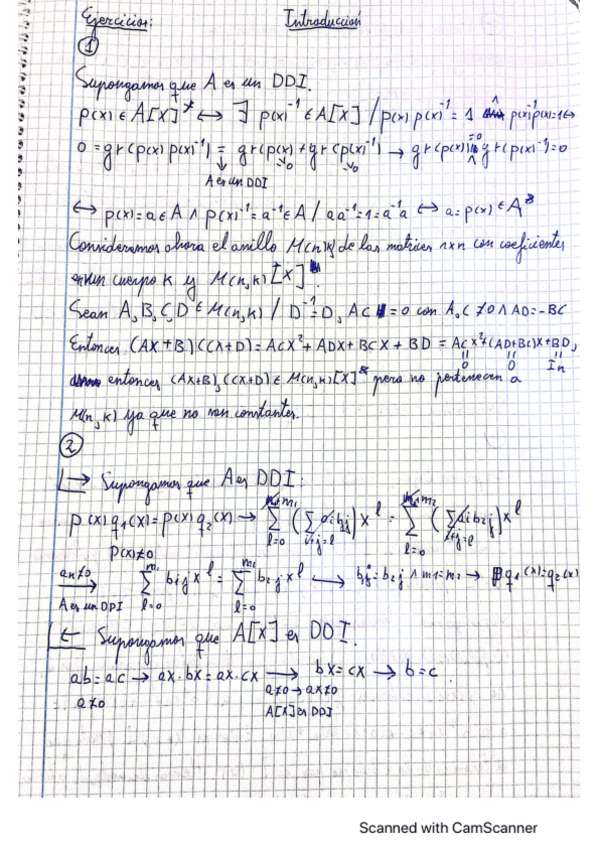 Ejercicios: Introducción
①
Supongamos que A es un DDI.
p(x) ∈ A[X]* ↔ ∃ p(x)⁻¹ ∈ A[X] / p(x) p(x)⁻¹ = 1 ∧ p(x)⁻¹p(x)=1 ↔
0 = gr(p(x) p(x)⁻¹) = gr(p(x)) + gr(p(x)⁻¹) → gr(p(x))=0 ∧ gr(p(x)⁻¹)=0
≥0 ≥0
A es un DDI
↔ p(x)=a ∈ A ∧ p(x)⁻¹=a⁻¹ ∈ A / aa⁻¹=1=a⁻¹a ↔ a=p(x) ∈ A*
Consideramos ahora el anillo M(n,k) de las matrices n×n con coeficientes
en un cuerpo K y M(n,k)[X].
Sean A,B,C,D ∈ M(n,k) / D⁻¹=D, AC=0 con A,C≠0 ∧ AD=-BC
Entonces (AX+B)(CX+D)=ACX²+ADX+BCX+BD = ACX²+(AD+BC)X+BD,
0 0 In
entonces (AX+B),(CX+D) ∈ M(n,k)[X]* pero no pertenecen a
M(n,k) ya que no son constantes.
②
→ Supongamos que A es DDI:
p(x)q₁(x)=p(x)q₂(x) → Σ (Σ aᵢb₁ⱼ) x^l = Σ (Σ aᵢb₂ⱼ) x^l
l=0 i+j=l l=0 i+j=l
p(x)≠0
an≠0
→ Σ b₁ⱼ x^l = Σ b₂ⱼ x^l → b₁ⱼ=b₂ⱼ ∧ m₁=m₂ → q₁(x)=q₂(x)
A es un DDI l=0 l=0
← Supongamos que A[X] es DDI.
ab=ac → ax·bx=ax·cx → bx=cx → b=c.
a≠0 a≠0→ax≠0
A[X] es DDI
Scanned with CamScanner